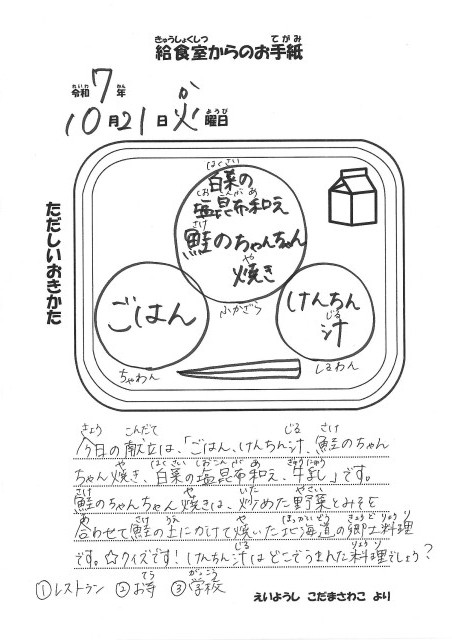 給食室からのお手紙
令和7年
10月21日火曜日
ただしいおきかた
白菜の
塩昆布和え
鮭のちゃんちゃん
焼き
ふかざら
ごはん
ちゃわん
けんちん
汁
しるわん
今日の献立は、「ごはん、けんちん汁、鮭のちゃん
ちゃん焼き、白菜の塩昆布和え、牛乳」です。
鮭のちゃんちゃん焼きは、炒めた野菜とみそを
合わせて鮭の上にかけて焼いた北海道の郷土料理
です。☆クイズです!けんちん汁はどこでうまれた料理でしょう?
①レストラン ②お寺 ③学校
えいようし こだまさわこ より